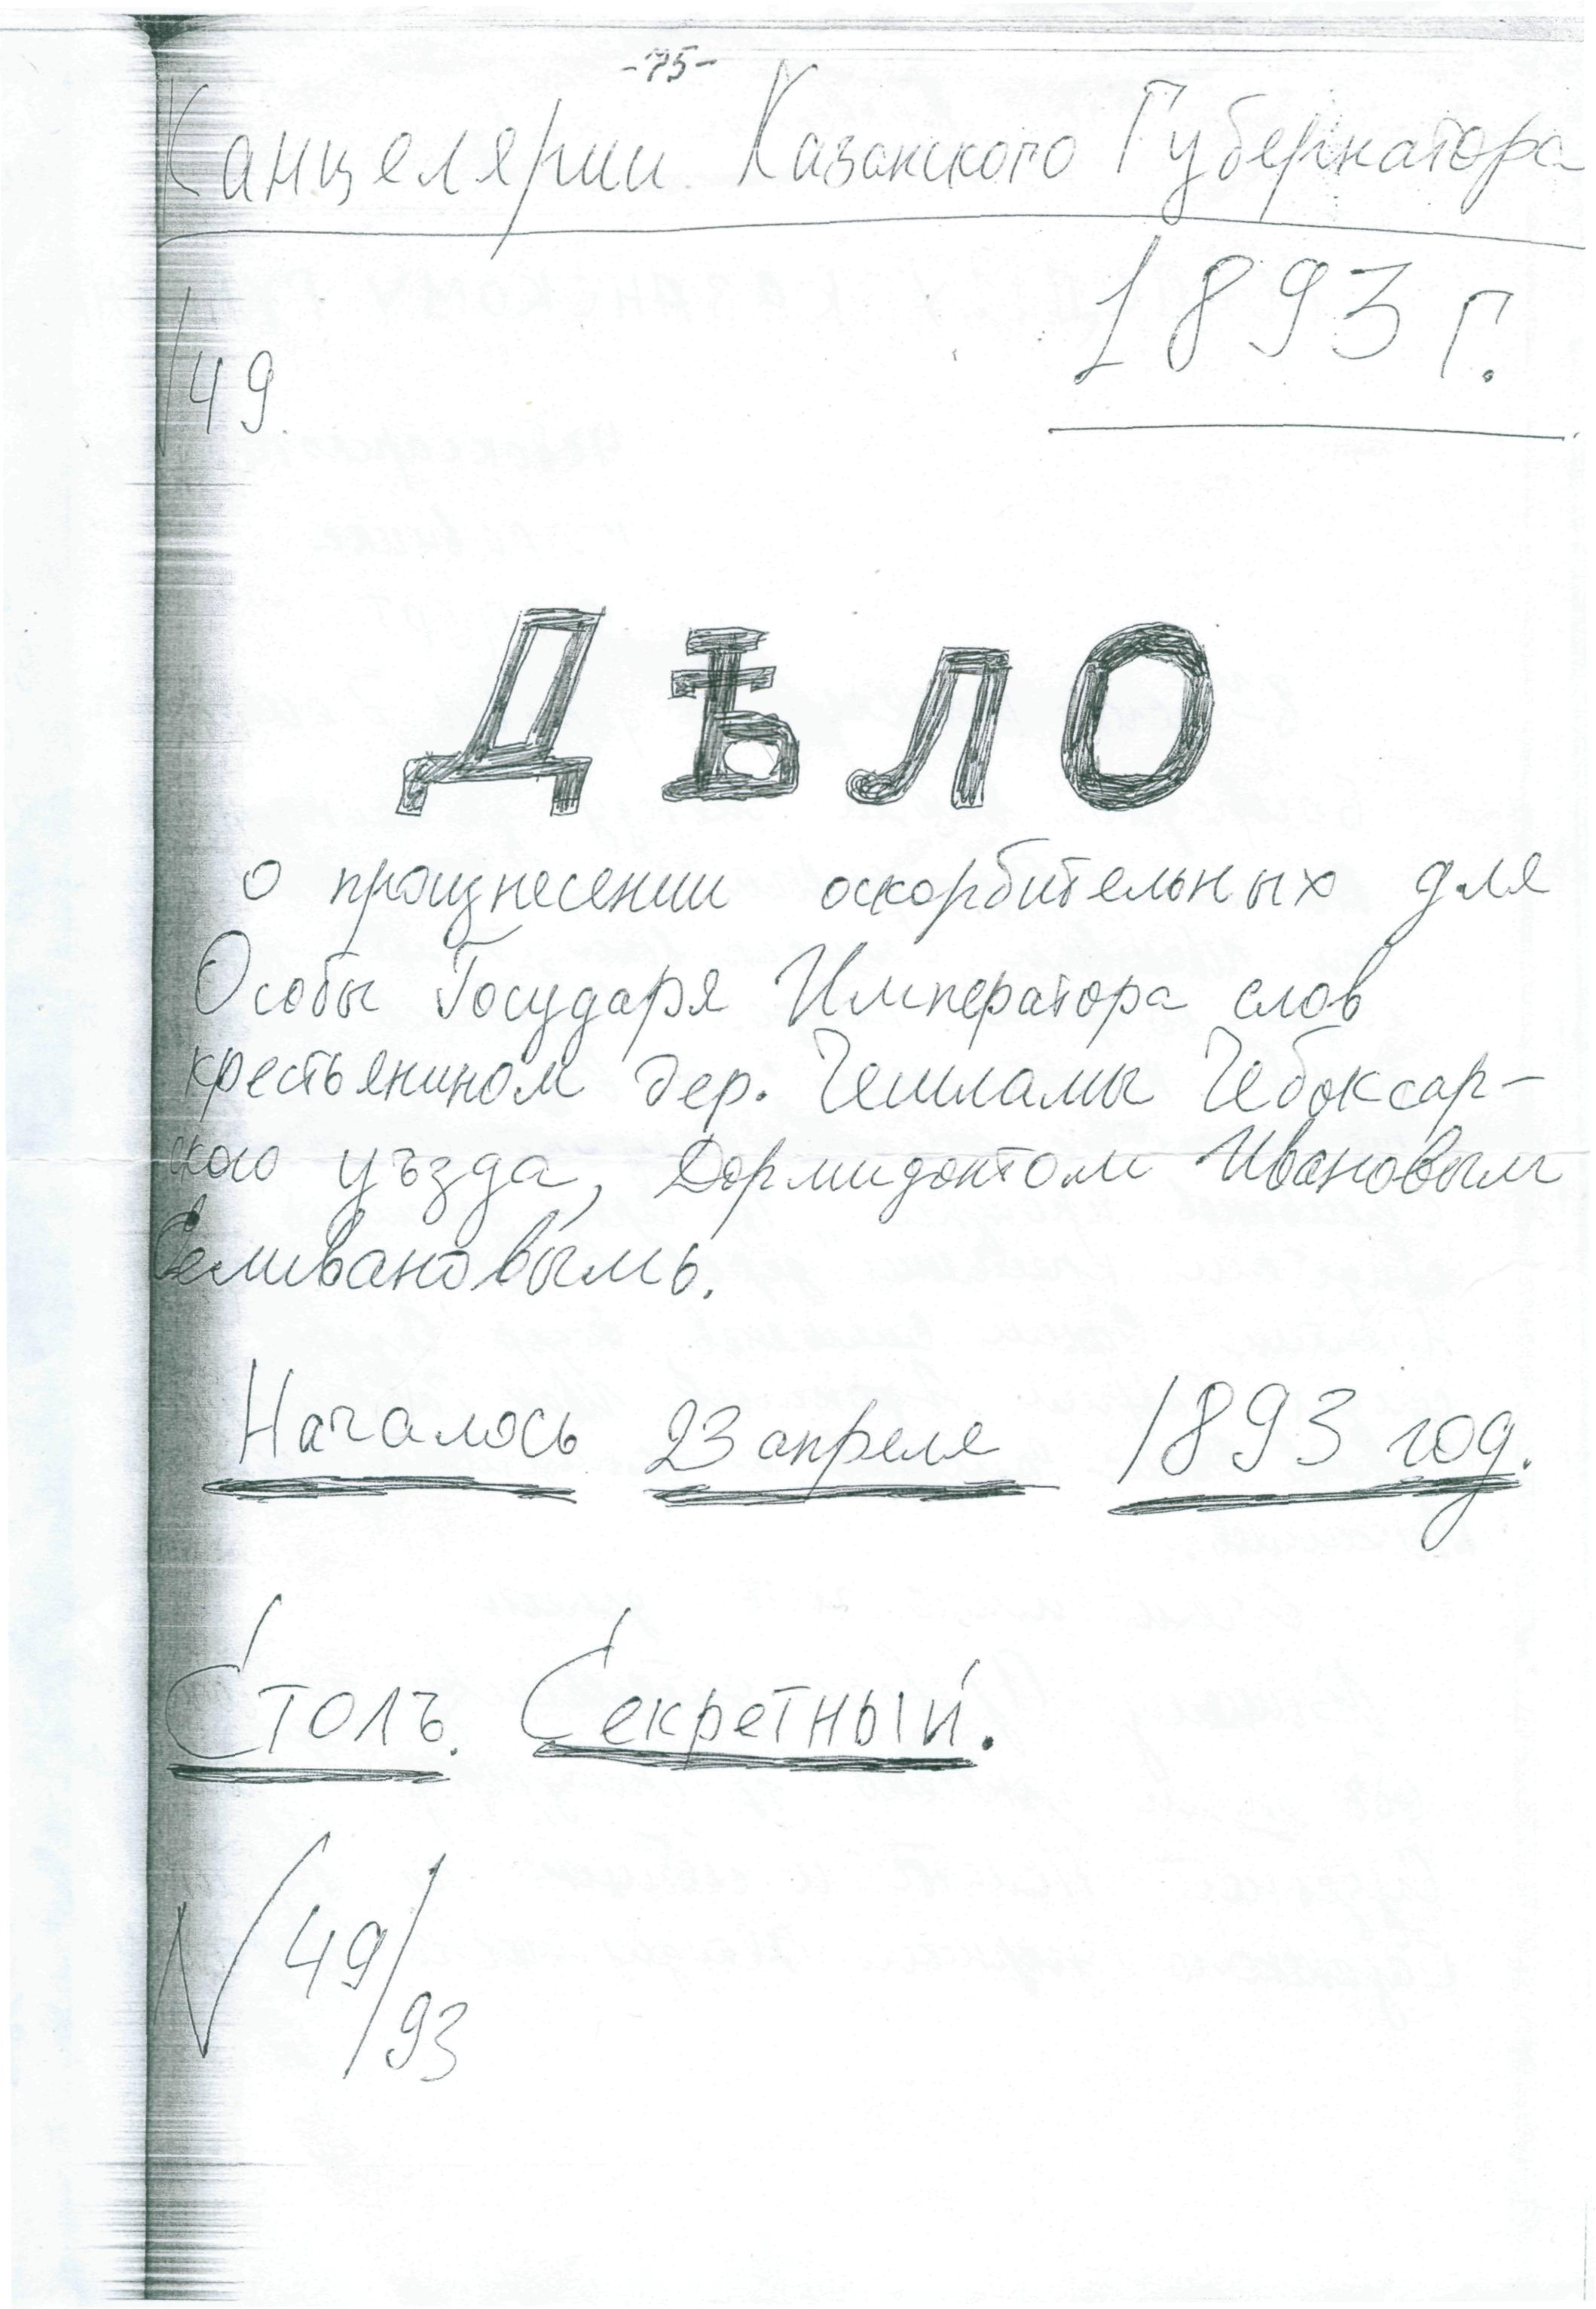 -75-
Канцелярии Казанского Губернатора
1893 г.
49.
ДѢЛО
о произнесении оскорбительных для
Особы Государя Императора слов
крестьянином дер. Чешламы Чебоксар-
ского уѣзда, Дормидонтом Ивановым
Селивановымъ.
Началось 23 апреля 1893 год.
Столъ. Секретный.
N 49/93